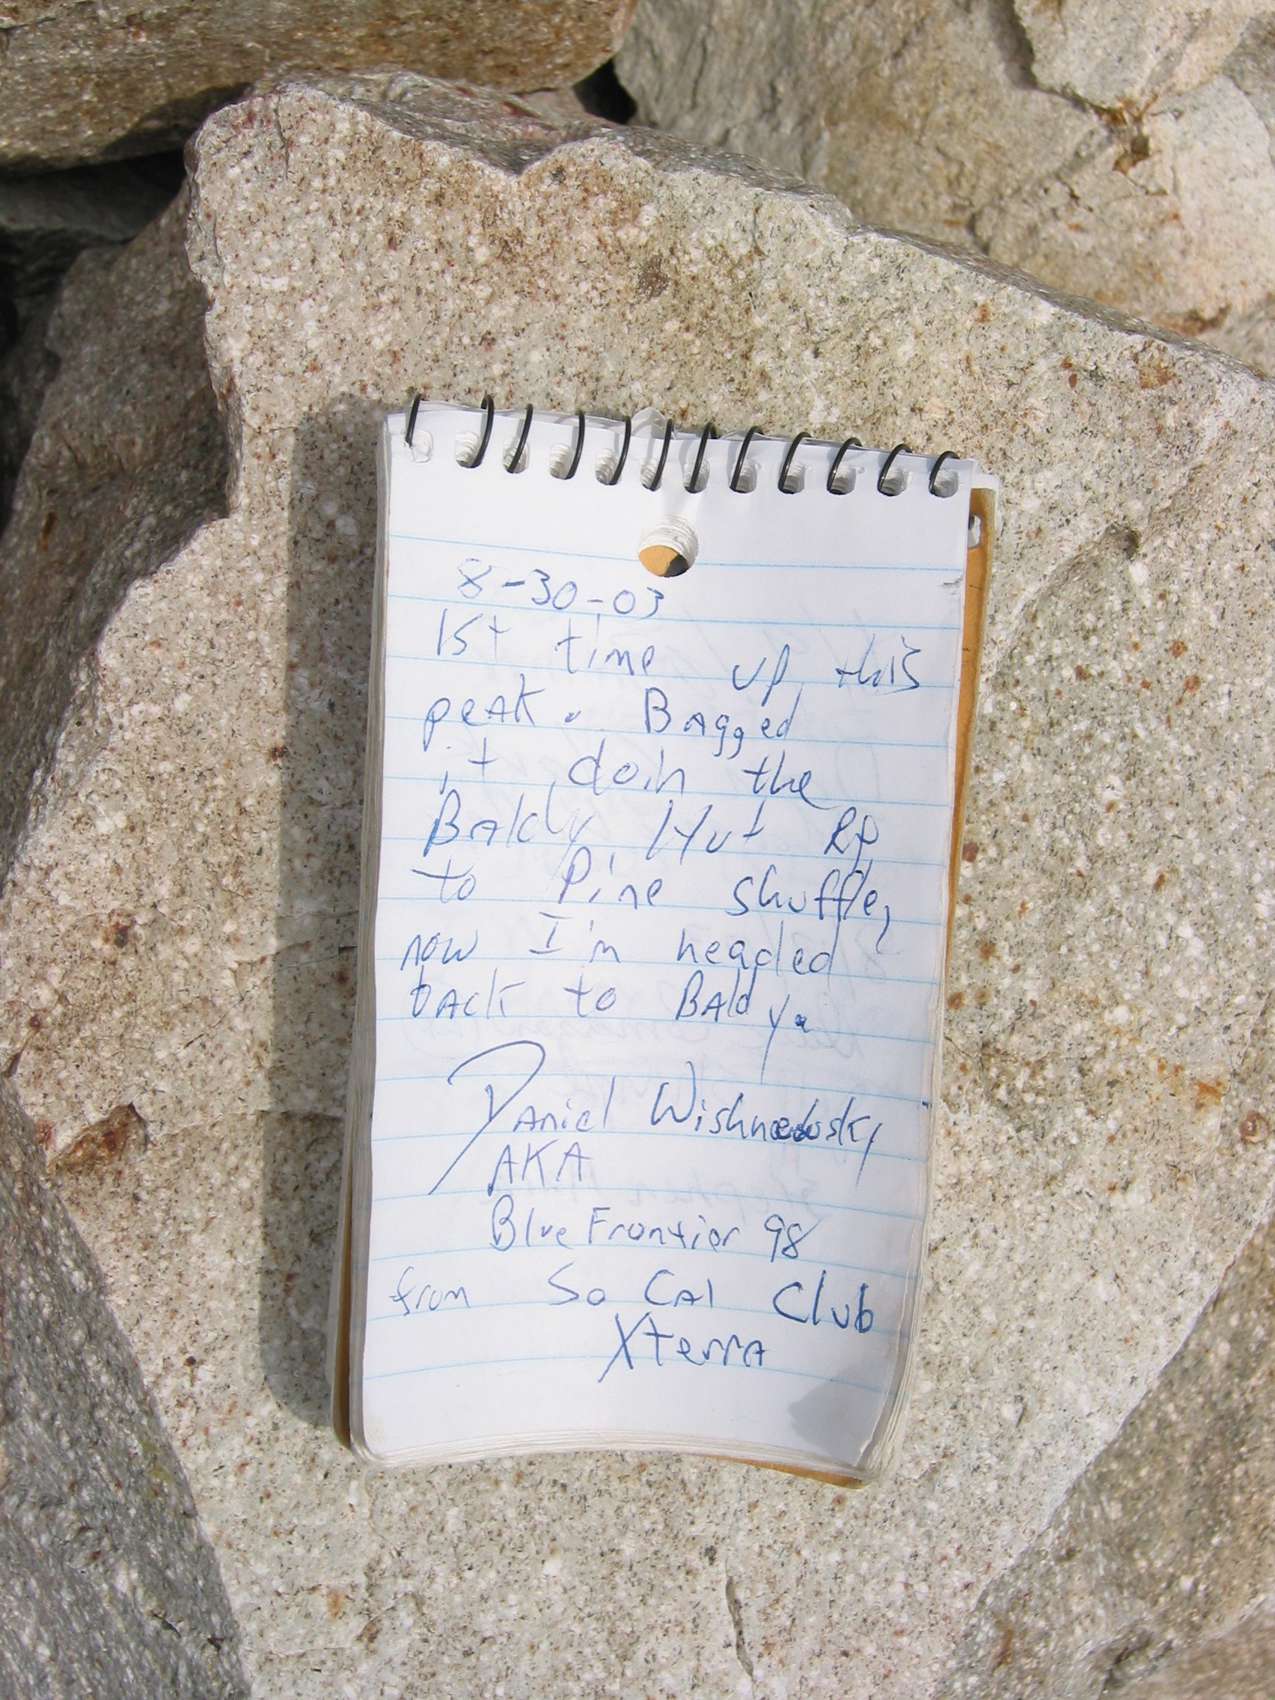 8-30-03
1st time up this
peak. Bagged
it doin the
Baldy Hut Rp
to Pine shuffle,
now I'm headed
back to Baldy.
Daniel
AKA
Blue Frontier 98
from So Cal Club
Xterra